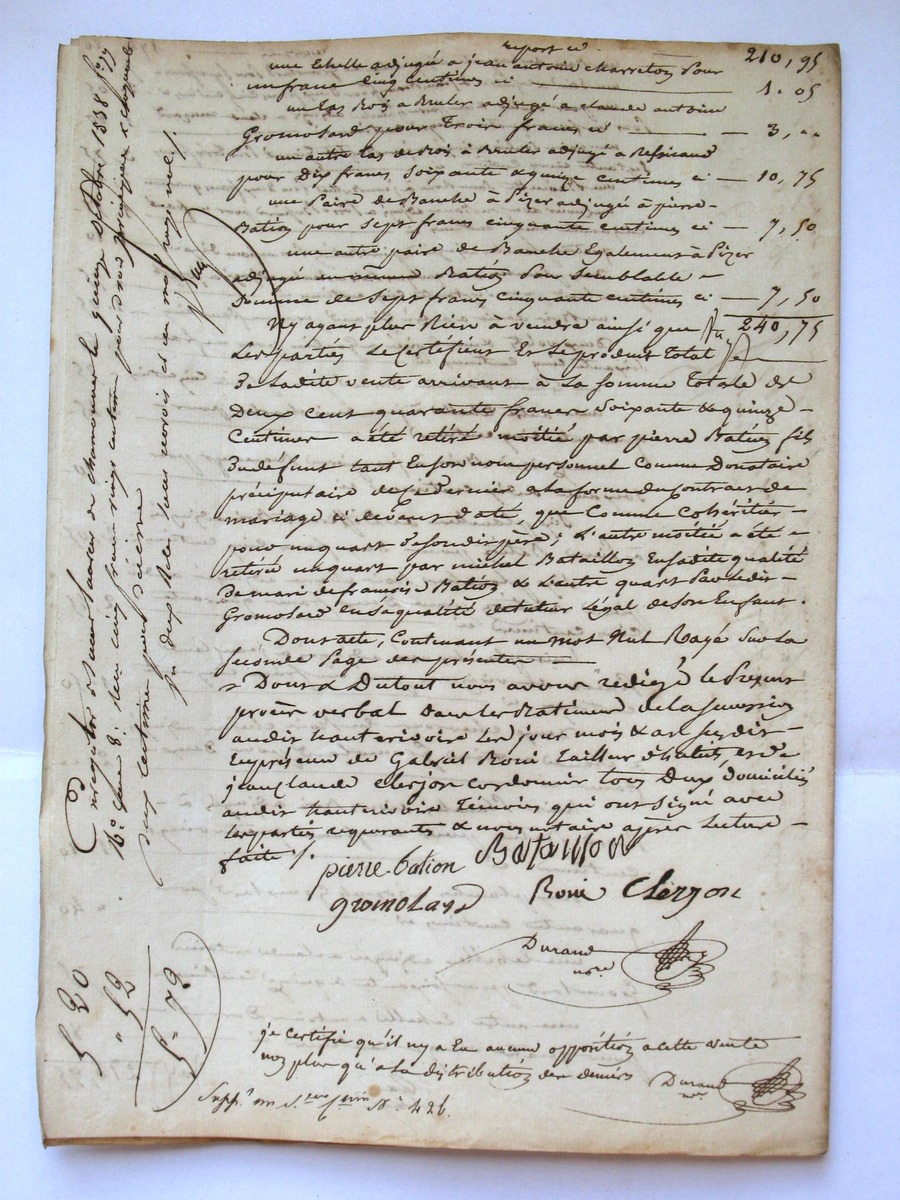 report ci 210,95
une Echelle adjugé a jean antoine charreton pour
un franc cinq centimes ci 1.05
un tas Bois a Bruler adjugé a claude antoine
Gromolard pour Trois francs ci 3,..
un autre tas de Bois à Bruler adjugé a
pour Dix francs Soixante & quinze centimes ci 10,75
une Paire de Banche à Pizer adjugé à pierre
Bation pour Sept francs cinquante centimes ci 7,50
une autre paire de Banche Egalement à Pizer
adjugé au même Bation Pour Semblable
Somme de Sept francs cinquante centimes ci 7,50
N'y ayant plus Rien à vendre ainsi que 240,75
Les parties Le Certifient Et Le produit Total
De Ladite vente arrivant à La Somme Totale de
Deux cent quarante francs Soixante & quinze
Centimes a été retiré moitié par pierre Bation fils
Du défunt tant En son nom personnel Comme Donataire
préciputaire de Ce Dernier a La forme du Contract de
mariage ci devant daté, que Comme Cohéritier
pour un quart De son dit père; L'autre moitié a été
retiré un quart par michel Bataillon En sadite qualité
De mari de françoise Bation & L'autre quart Par Ledit
Gromolard En sa qualité de tuteur Légal de son Enfant.
Dont acte, Contenant un mot Nul Rayé Sur La
Seconde Page des présentes
Dont & Du tout nous avons redigé le Present
procès verbal Dans Les Batiments de La Succession
audit hauterivoire Les jour mois & an susdits
En présence de Gabriel Boni Tailleur d'habits, et de
jean claude Clerjon cordonnier tous Deux domiciliés
audit hauterivoire Témoins qui ont Signé avec
Les parties requerantes & nous notaire après Lecture
faite ./.
pierre bation Bataillon
gromolard Boni Clerjon
Durand
nore
je certifie qu'il n'y a Eu aucune opposition a cette vente
non plus qu'a La distribution des deniers Durand
nre
Supp. No 426.
Enregistré à Saint Laurent de chamousset le quinze octobre 1838 fo 17
Ro Case 8: Reçu cinq francs vingt centimes pour droit principaux &
deux centimes pour dixieme
Durand
5 20
" 52
5 = 72